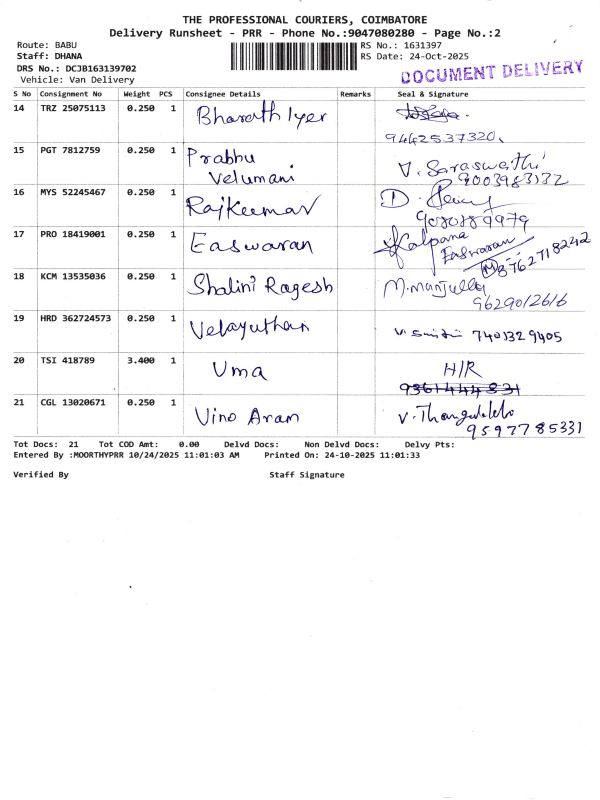 THE PROFESSIONAL COURIERS, COIMBATORE
Delivery Runsheet - PRR - Phone No.:9047080280 - Page No.:2
Route: BABU RS No.: 1631397
Staff: DHANA RS Date: 24-Oct-2025
DRS No.: DCJB163139702
Vehicle: Van Delivery
DOCUMENT DELIVERY
S No Consignment No Weight PCS Consignee Details Remarks Seal & Signature
14 TRZ 25075113 0.250 1 Bharath Iyer
9442537320
15 PGT 7812759 0.250 1 Prabhu Velumani V. Saraswathi
9003983132
16 MYS 52245467 0.250 1 Rajkumar D.
9080889979
17 PRO 18419001 0.250 1 Easwaran Kalpana
Easwaran
8762718242
18 KCM 13535036 0.250 1 Shalini Ragesh M.manjulla
9629012616
19 HRD 362724573 0.250 1 Velayuthan 7401329405
20 TSI 418789 3.400 1 Uma H/R
9361444831
21 CGL 13020671 0.250 1 Vino Aram
9597785331
Tot Docs: 21 Tot COD Amt: 0.00 Delvd Docs: Non Delvd Docs: Delvy Pts:
Entered By :MOORTHYPRR 10/24/2025 11:01:03 AM Printed On: 24-10-2025 11:01:33
Verified By Staff Signature